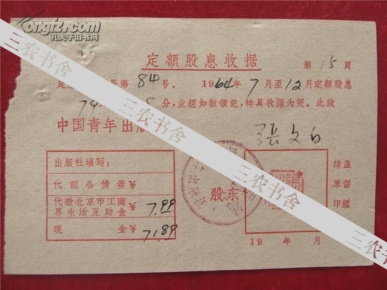 定額股息收据
第15頁
第84号。1964年7月至12月定額股息
分,业經如数領訖,特具收据为凭。此致
中国青年出版
張文白
出版社填写:
代証公債券¥
代繳北京市工商
界生活互助金¥ 7.99
現金¥ 71.89
股东
請盖
原留
印鑑
19 年 月
三农书舍
三农书舍
三农书舍
三农书舍